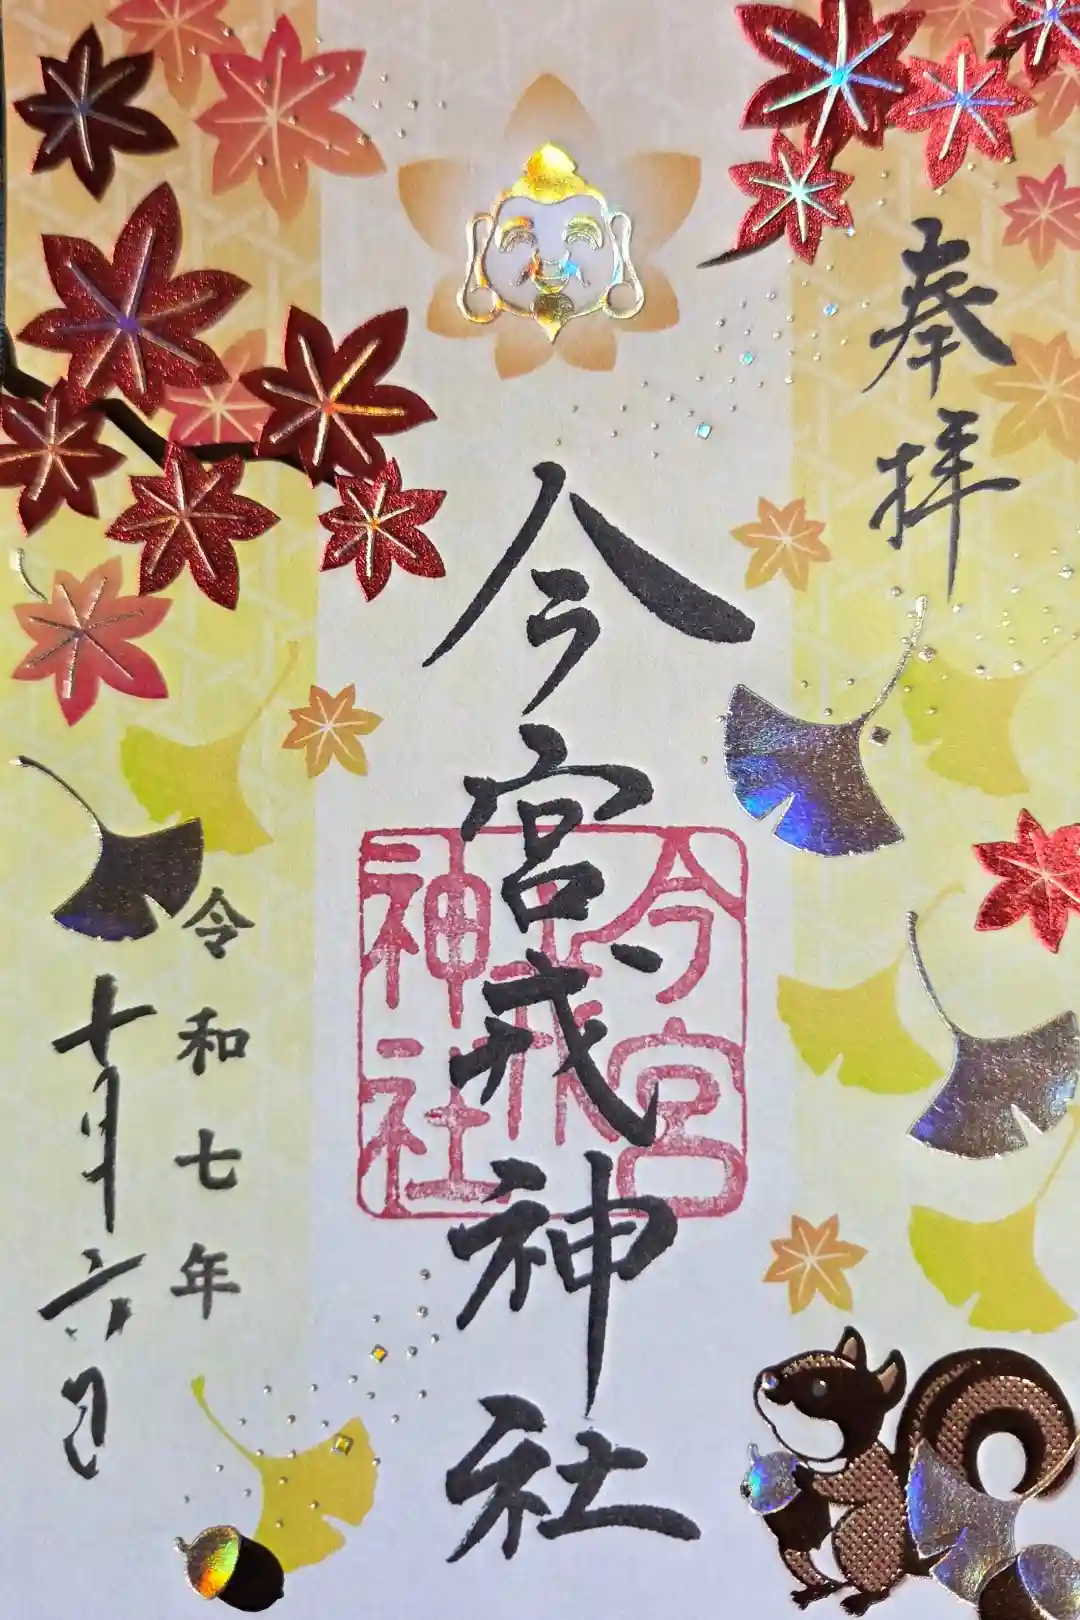 奉拝
今宮戎神社
今宮戎神社
令和七年
十月六日